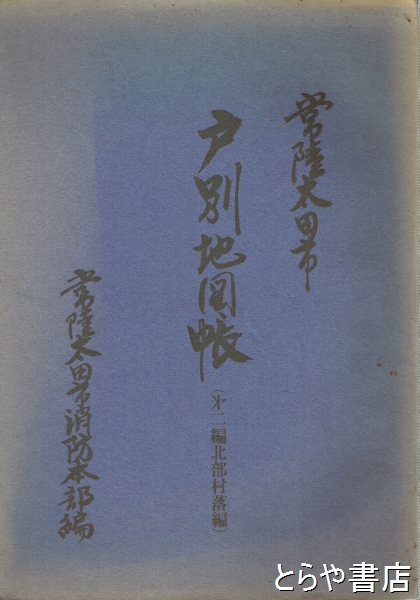 常陸太田市
戸別地図帳
(才二編北部村落編)
常陸太田市消防本部編
とらや書店